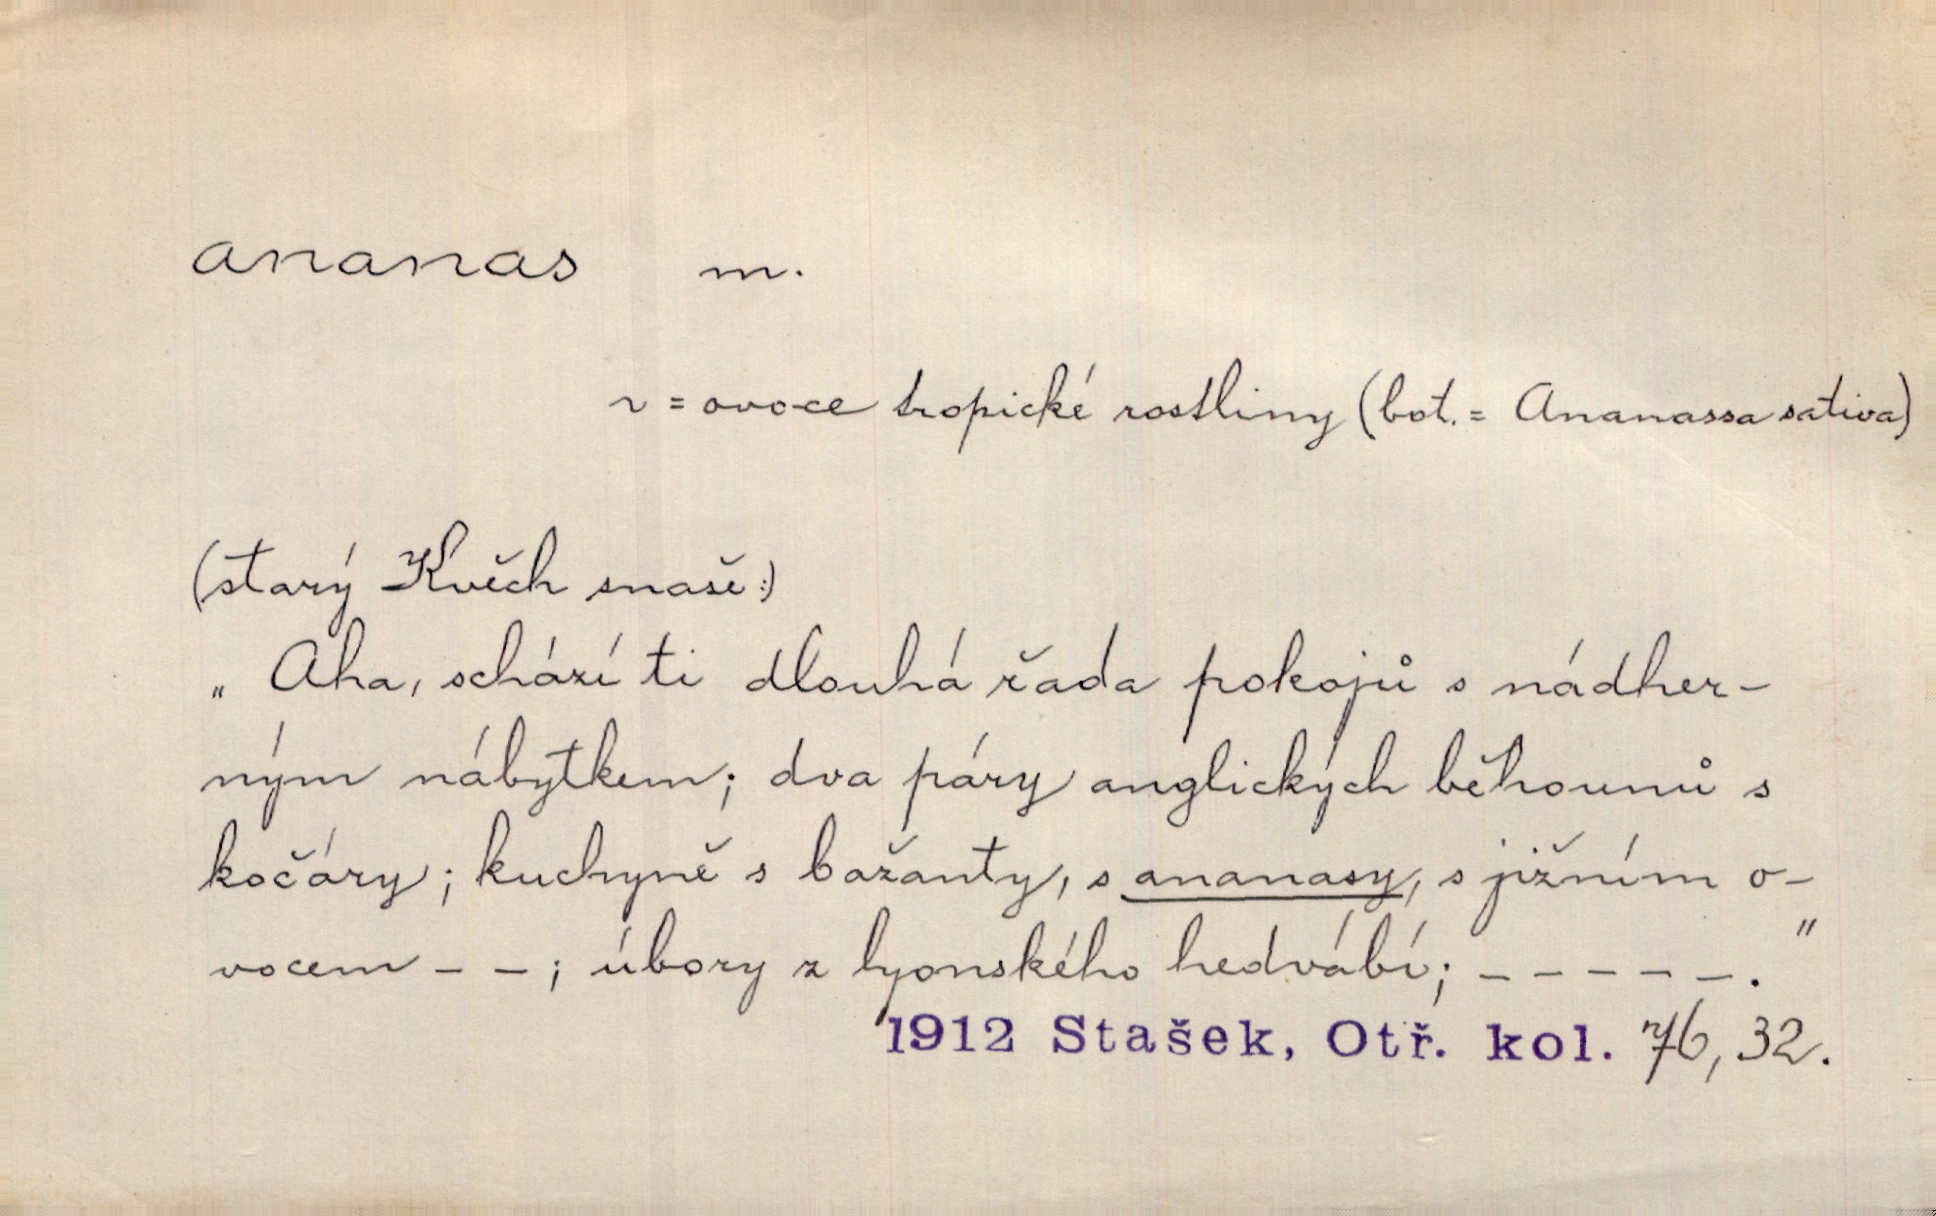 ananas m.
~ = ovoce tropické rostliny (bot. = Ananassa sativa)
(starý Kvěch snaše:)
„Aha, schází ti dlouhá řada pokojů s nádher-
ným nábytkem; dva páry anglických běhounů s
kočáry; kuchyně s bažanty, s ananasy, s jižním o-
vocem - - ; úbory z lyonského hedvábí; - - - - - ."
1912 Stašek, Otř. kol. 76, 32.